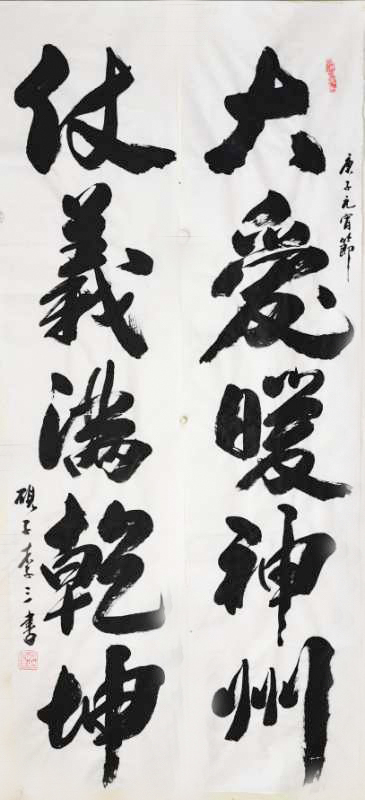 庚子元宵節
大愛暖神州
仗義滿乾坤
硯子李三書